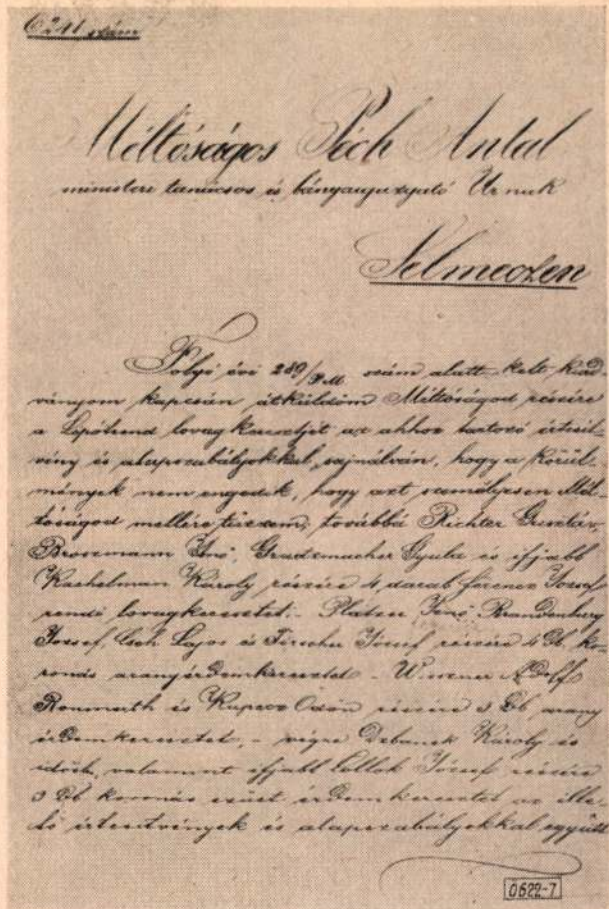 6241 szám
Méltóságos Péch Antal
ministeri tanácsos és bányaigazgató Úrnak
Selmeczen
Folyó évi 289/P.M. szám alatt kelt kiad-
ványom kapcsán átküldöm Méltóságod részére
a Lipótrend lovagkeresztjét az ahhoz tartozó értesít-
vény és alapszabályokkal, sajnálván, hogy a körül-
mények nem engedik, hogy azt személyesen Mél-
tóságod mellére tűzzem, továbbá Richter Gusztáv,
Jenő, Gyula és ifjabb
Kachelman Károly részére 4 darab Ferencz József
rendű lovagkeresztet; - Jenő, Brandenburg
József, Cseh Lajos és József részére 4 Db. ko-
ronás arany érdemkeresztet - Adolf
és Ödön részére 3 Db arany
érdemkeresztet, - végre Károly és
idősb, valamint ifjabb József részére
3 Db koronás ezüst érdemkeresztet az ille-
tő értesítvények és alapszabályokkal együtt
0622-7